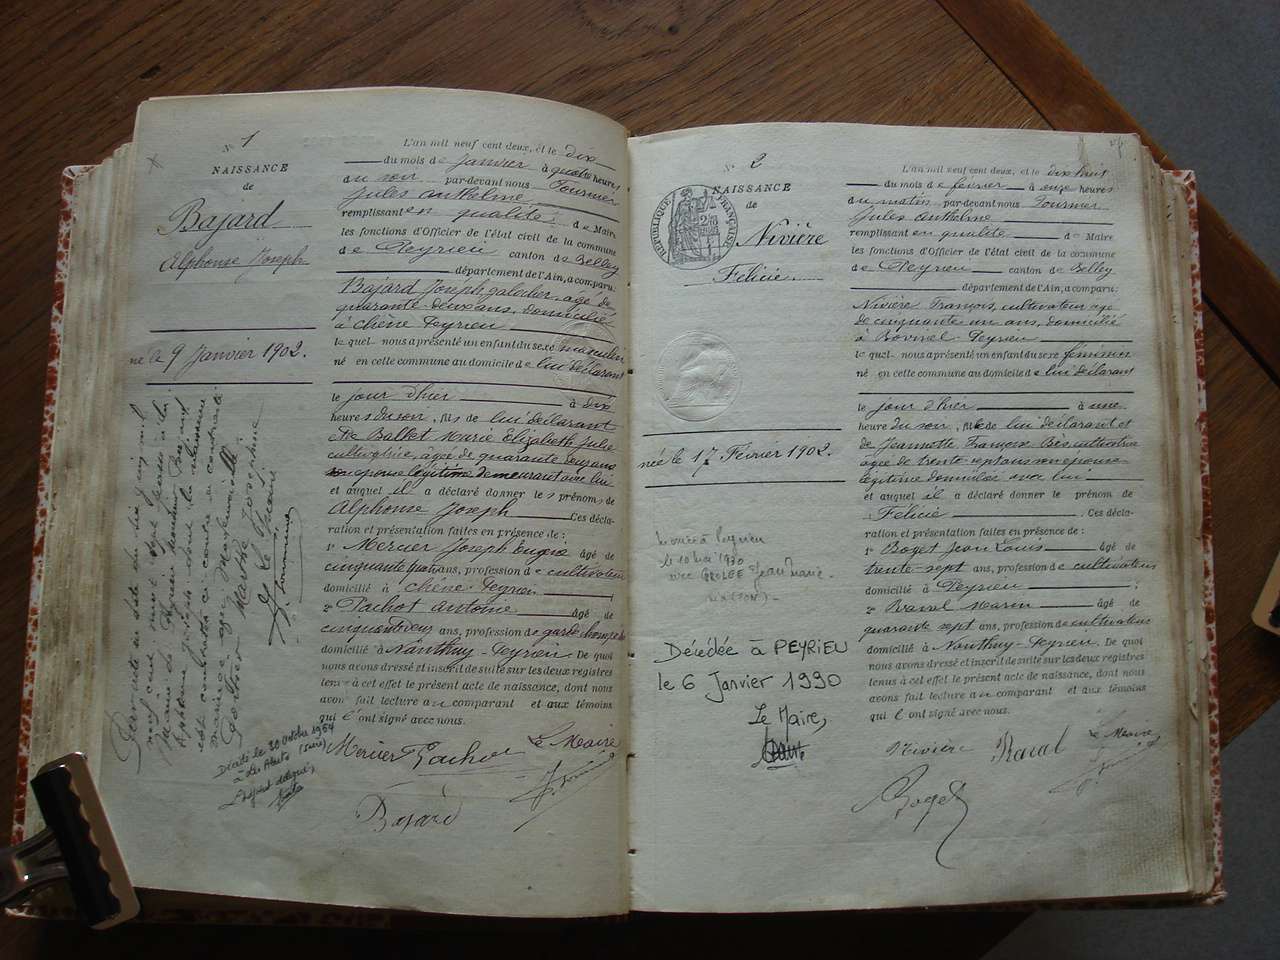 N° 1
NAISSANCE
de
Bajard
Alphonse Joseph
né le 9 Janvier 1902.
L'an mil neuf cent deux, et le dix
du mois de janvier à quatre heures
du soir par-devant nous Fournier
Jules Anthelme
remplissant en qualité de Maire
les fonctions d'Officier de l'état civil de la commune
de Peyrieu canton de Belley
département de l'Ain, a comparu:
Bajard Joseph âgé de
quarante deux ans, domicilié
à Chêne Peyrieu
lequel nous a présenté un enfant du sexe masculin
né en cette commune au domicile de lui déclarant
le jour d'hier à dix
heures du soir, fils de lui déclarant
et de Ballet Marie Elizabeth Julie
cultivatrice, âgée de quarante ans
son épouse légitime demeurant avec lui
et auquel il a déclaré donner les prénoms de
Alphonse Joseph Ces décla-
ration et présentation faites en présence de :
1° Mercier Joseph Eugène âgé de
cinquante ans, profession de cultivateur
domicilié à Chêne-Peyrieu
2° Pachot Antoine âgé de
cinquante deux ans, profession de garde champêtre
domicilié à Nanthuy-Peyrieu. De quoi
nous avons dressé et inscrit de suite sur les deux registres
tenus à cel effet le présent acte de naissance, dont nous
avons fait lecture au comparant et aux témoins
qui l' ont signé avec nous.
Mercier Pachot Le Maire
Bajard
Par acte en date du dix juin mil
neuf cent
Maire de Peyrieu
Alphonse Joseph dont la naissance
est constatée ci contre a contracté
mariage avec Mademoiselle
Marthe Josephine
Le Maire
Décédé le 30 Octobre 1954
N° 2
NAISSANCE
de
RÉPUBLIQUE FRANÇAISE
Nivière
Félicie
née le 17 Février 1902.
le 10 Mai 1930
avec GROLEE Jean Marie
Décédée à PEYRIEU
le 6 Janvier 1990
Le Maire,
L'an mil neuf cent deux, et le dix huit
du mois de février à onze heures
du matin par-devant nous Fournier
Jules Anthelme
remplissant en qualité de Maire
les fonctions d'Officier de l'état civil de la commune
de Peyrieu canton de Belley
département de l'Ain, a comparu:
Nivière François, cultivateur âgé
de cinquante un ans, domicilié
à Bovinel Peyrieu
lequel nous a présenté un enfant du sexe féminin
né en cette commune au domicile de lui déclarant
le jour d'hier à une
heure du soir, fille de lui déclarant et
de Jeannette Françoise cultivatrice
âgée de trente sept ans son épouse
légitime domiciliée avec lui
et auquel il a déclaré donner le prénom de
Félicie Ces décla-
ration et présentation faites en présence de :
1° Boget Jean Louis âgé de
trente-sept ans, profession de cultivateur
domicilié à Peyrieu
2° Raval Marin âgé de
quarante sept ans, profession de cultivateur
domicilié à Nanthuy-Peyrieu. De quoi
nous avons dressé et inscrit de suite sur les deux registres
tenus à cel effet le présent acte de naissance, dont nous
avons fait lecture au comparant et aux témoins
qui l' ont signé avec nous.
Nivière Raval Le Maire
Boget